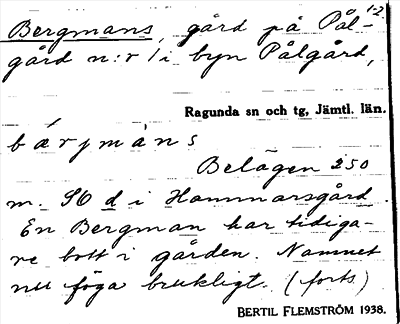 1-2
Bergmans, gård på Pål-
gård n:r 1 i byn Pålgård,
Ragunda sn och tg, Jämtl. län.
bärjmàns
Belägen 250
m. SO d i Hammarsgård.
En Bergman har tidiga-
re bott i gården. Namnet
nu föga brukligt. (forts.)
BERTIL FLEMSTRÖM 1938.